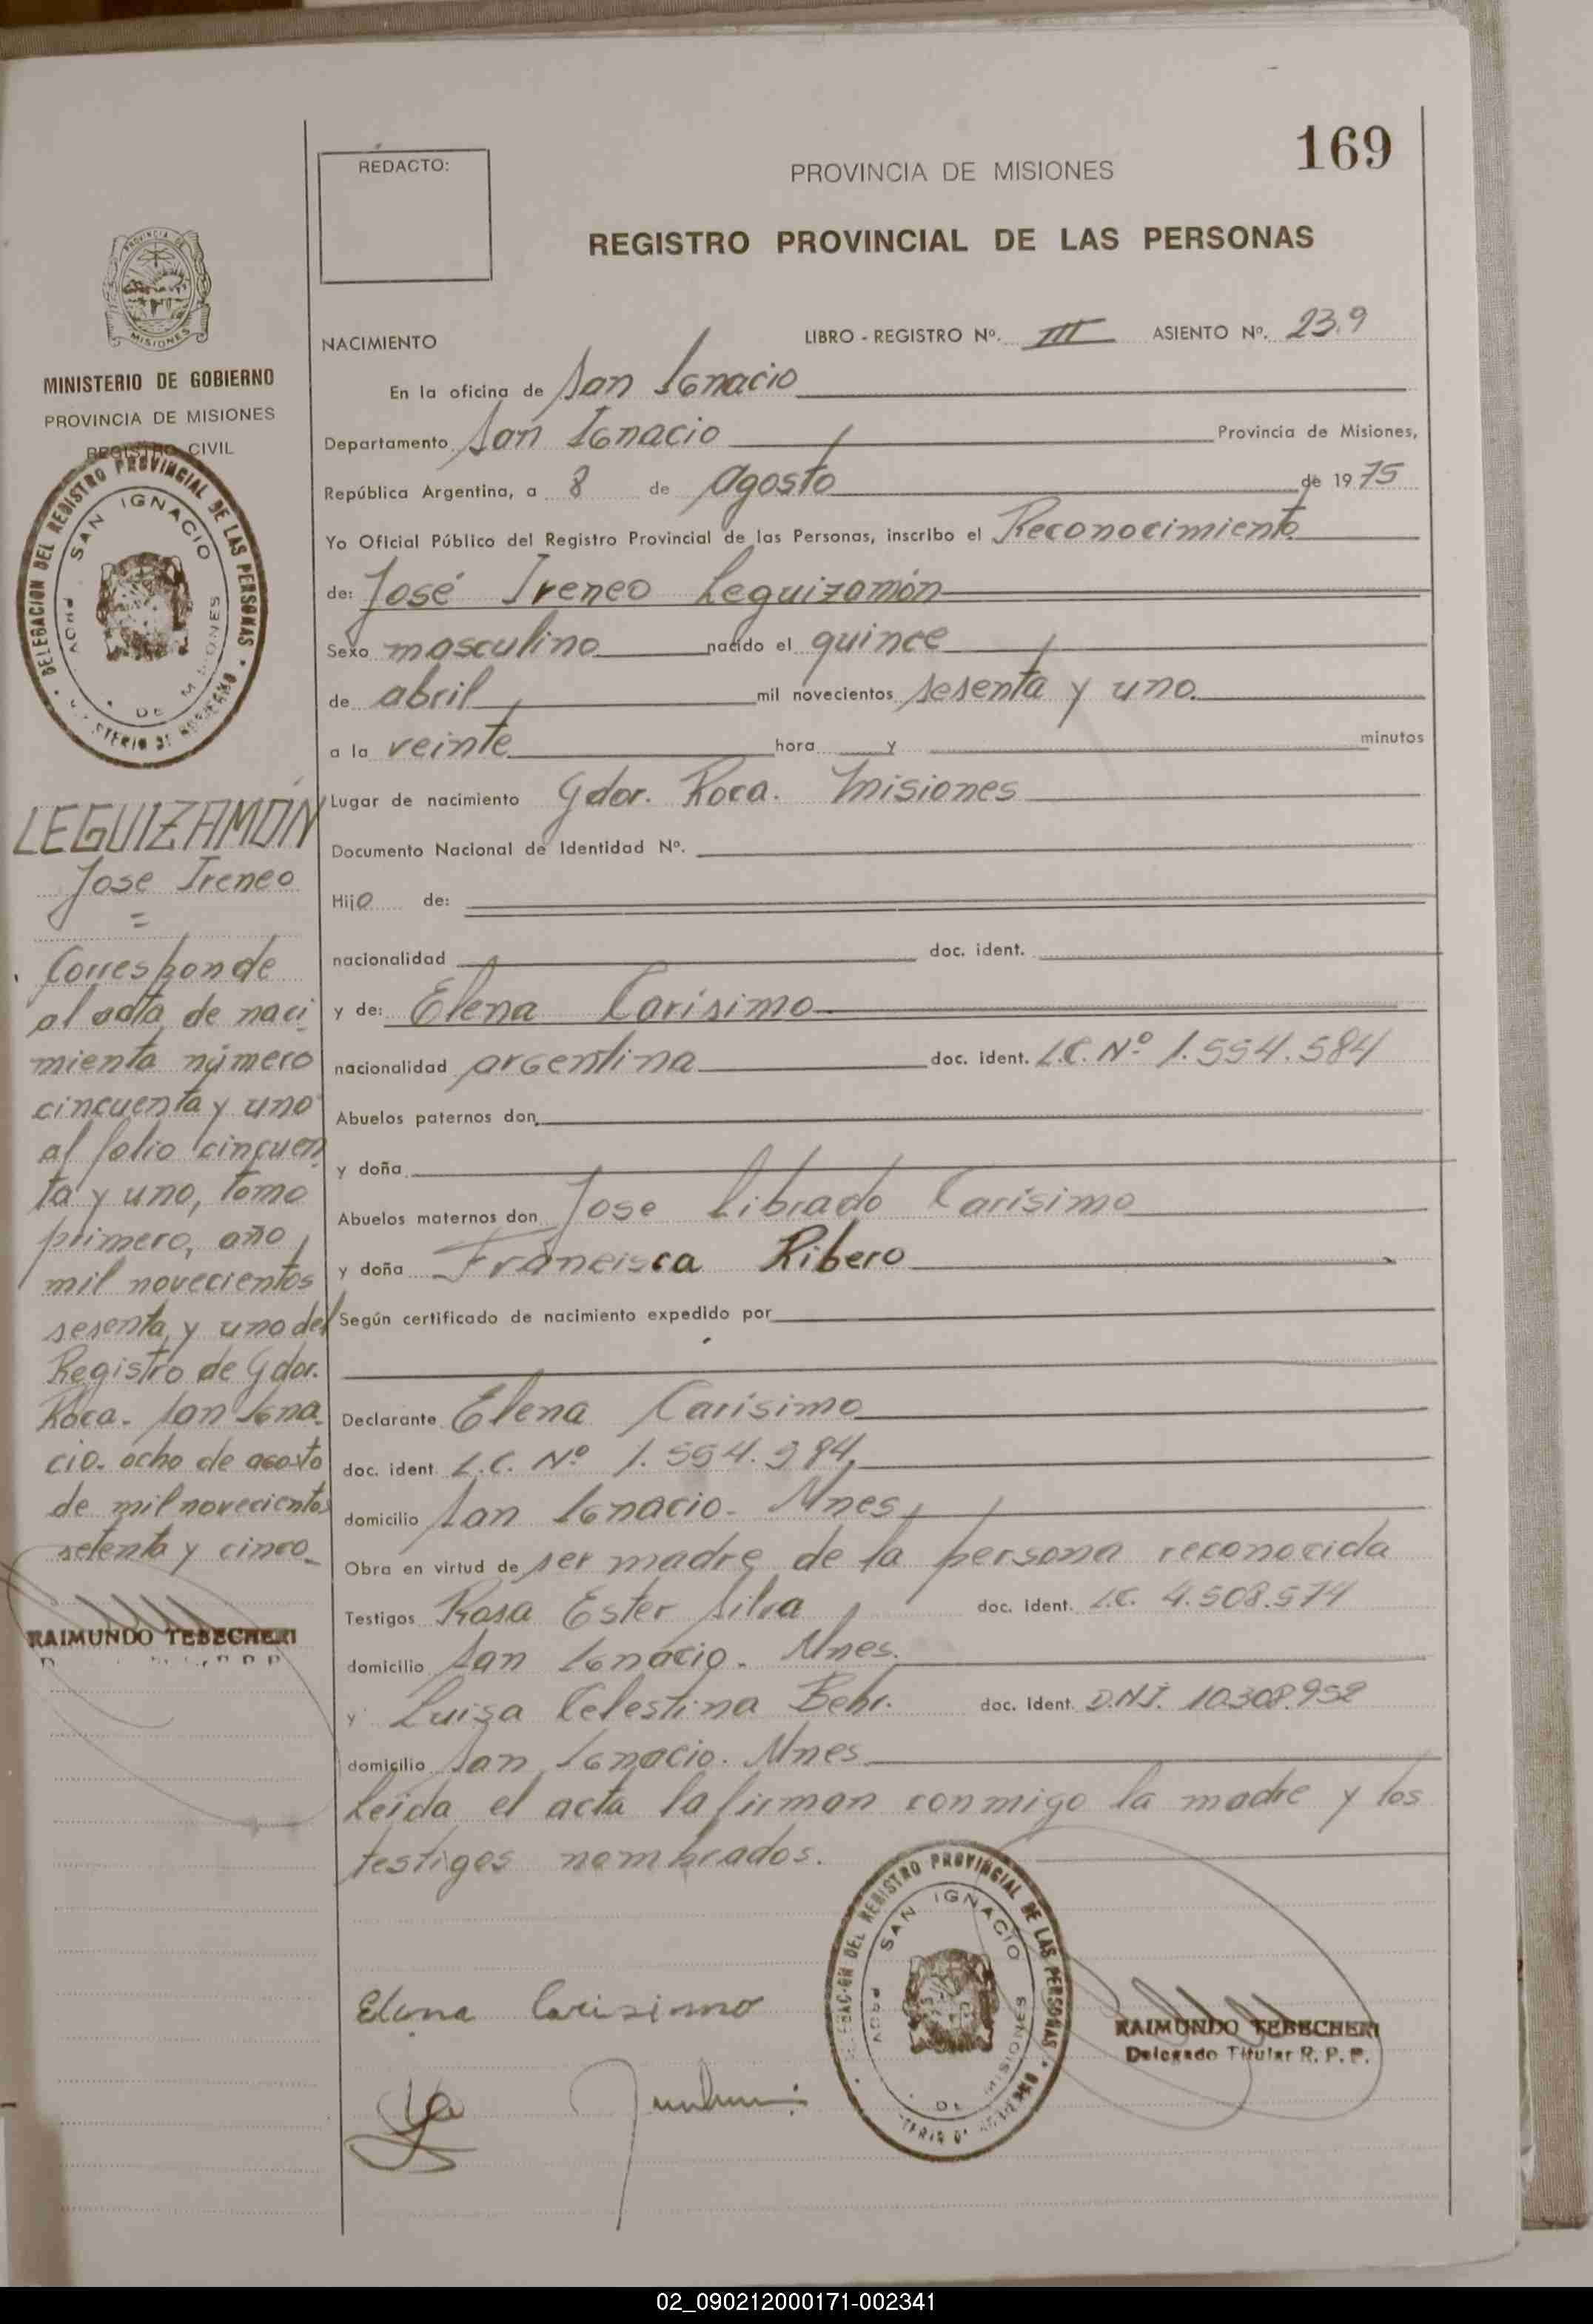 169
REDACTO:
PROVINCIA DE MISIONES
REGISTRO PROVINCIAL DE LAS PERSONAS
PROVINCIA DE
MISIONES
MINISTERIO DE GOBIERNO
PROVINCIA DE MISIONES
REGISTRO CIVIL
DELEGACION DEL REGISTRO PROVINCIAL DE LAS PERSONAS
SAN IGNACIO
PROV DE MISIONES
LEGUIZAMÓN
Jose Ireneo
=
Corresponde
al acta de naci
miento número
cincuenta y uno
al folio cincuen
ta y uno, tomo
primero, año
mil novecientos
sesenta y uno del
Registro de Gdor.
Roca. San Igna
cio. ocho de agosto
de mil novecientos
setenta y cinco.
RAIMUNDO TEBECHERI
NACIMIENTO LIBRO - REGISTRO Nº. III ASIENTO Nº. 239
En la oficina de San Ignacio
Departamento San Ignacio Provincia de Misiones,
República Argentina, a 8 de Agosto de 1975
Yo Oficial Público del Registro Provincial de las Personas, inscribo el Reconocimiento
de: José Ireneo Leguizamón
Sexo masculino nacido el quince
de abril mil novecientos sesenta y uno.
a la veinte hora y minutos
Lugar de nacimiento Gdor. Roca. Misiones
Documento Nacional de Identidad Nº.
Hijo de:
nacionalidad doc. ident.
y de: Elena Carísimo
nacionalidad argentina doc. ident. L.C. Nº 1.554.584
Abuelos paternos don
y doña
Abuelos maternos don Jose Librado Carísimo
y doña Francisca Ribero
Según certificado de nacimiento expedido por
Declarante Elena Carísimo
doc. ident. L.C. Nº 1.554.984
domicilio San Ignacio. Mnes
Obra en virtud de ser madre de la persona reconocida
Testigos Rosa Ester Silva doc. ident. L.C. 4.508.574
domicilio San Ignacio. Mnes.
y Luisa Celestina Behr. doc. ident. D.N.I. 10.308.952
domicilio San Ignacio. Mnes
Leída el acta la firman conmigo la madre y los
testigos nombrados.
Elena Carisimo
DELEGACION DEL REGISTRO PROVINCIAL DE LAS PERSONAS
SAN IGNACIO
PROV DE MISIONES
RAIMUNDO TEBECHERI
Delegado Titular R. P. P.
02_090212000171-002341